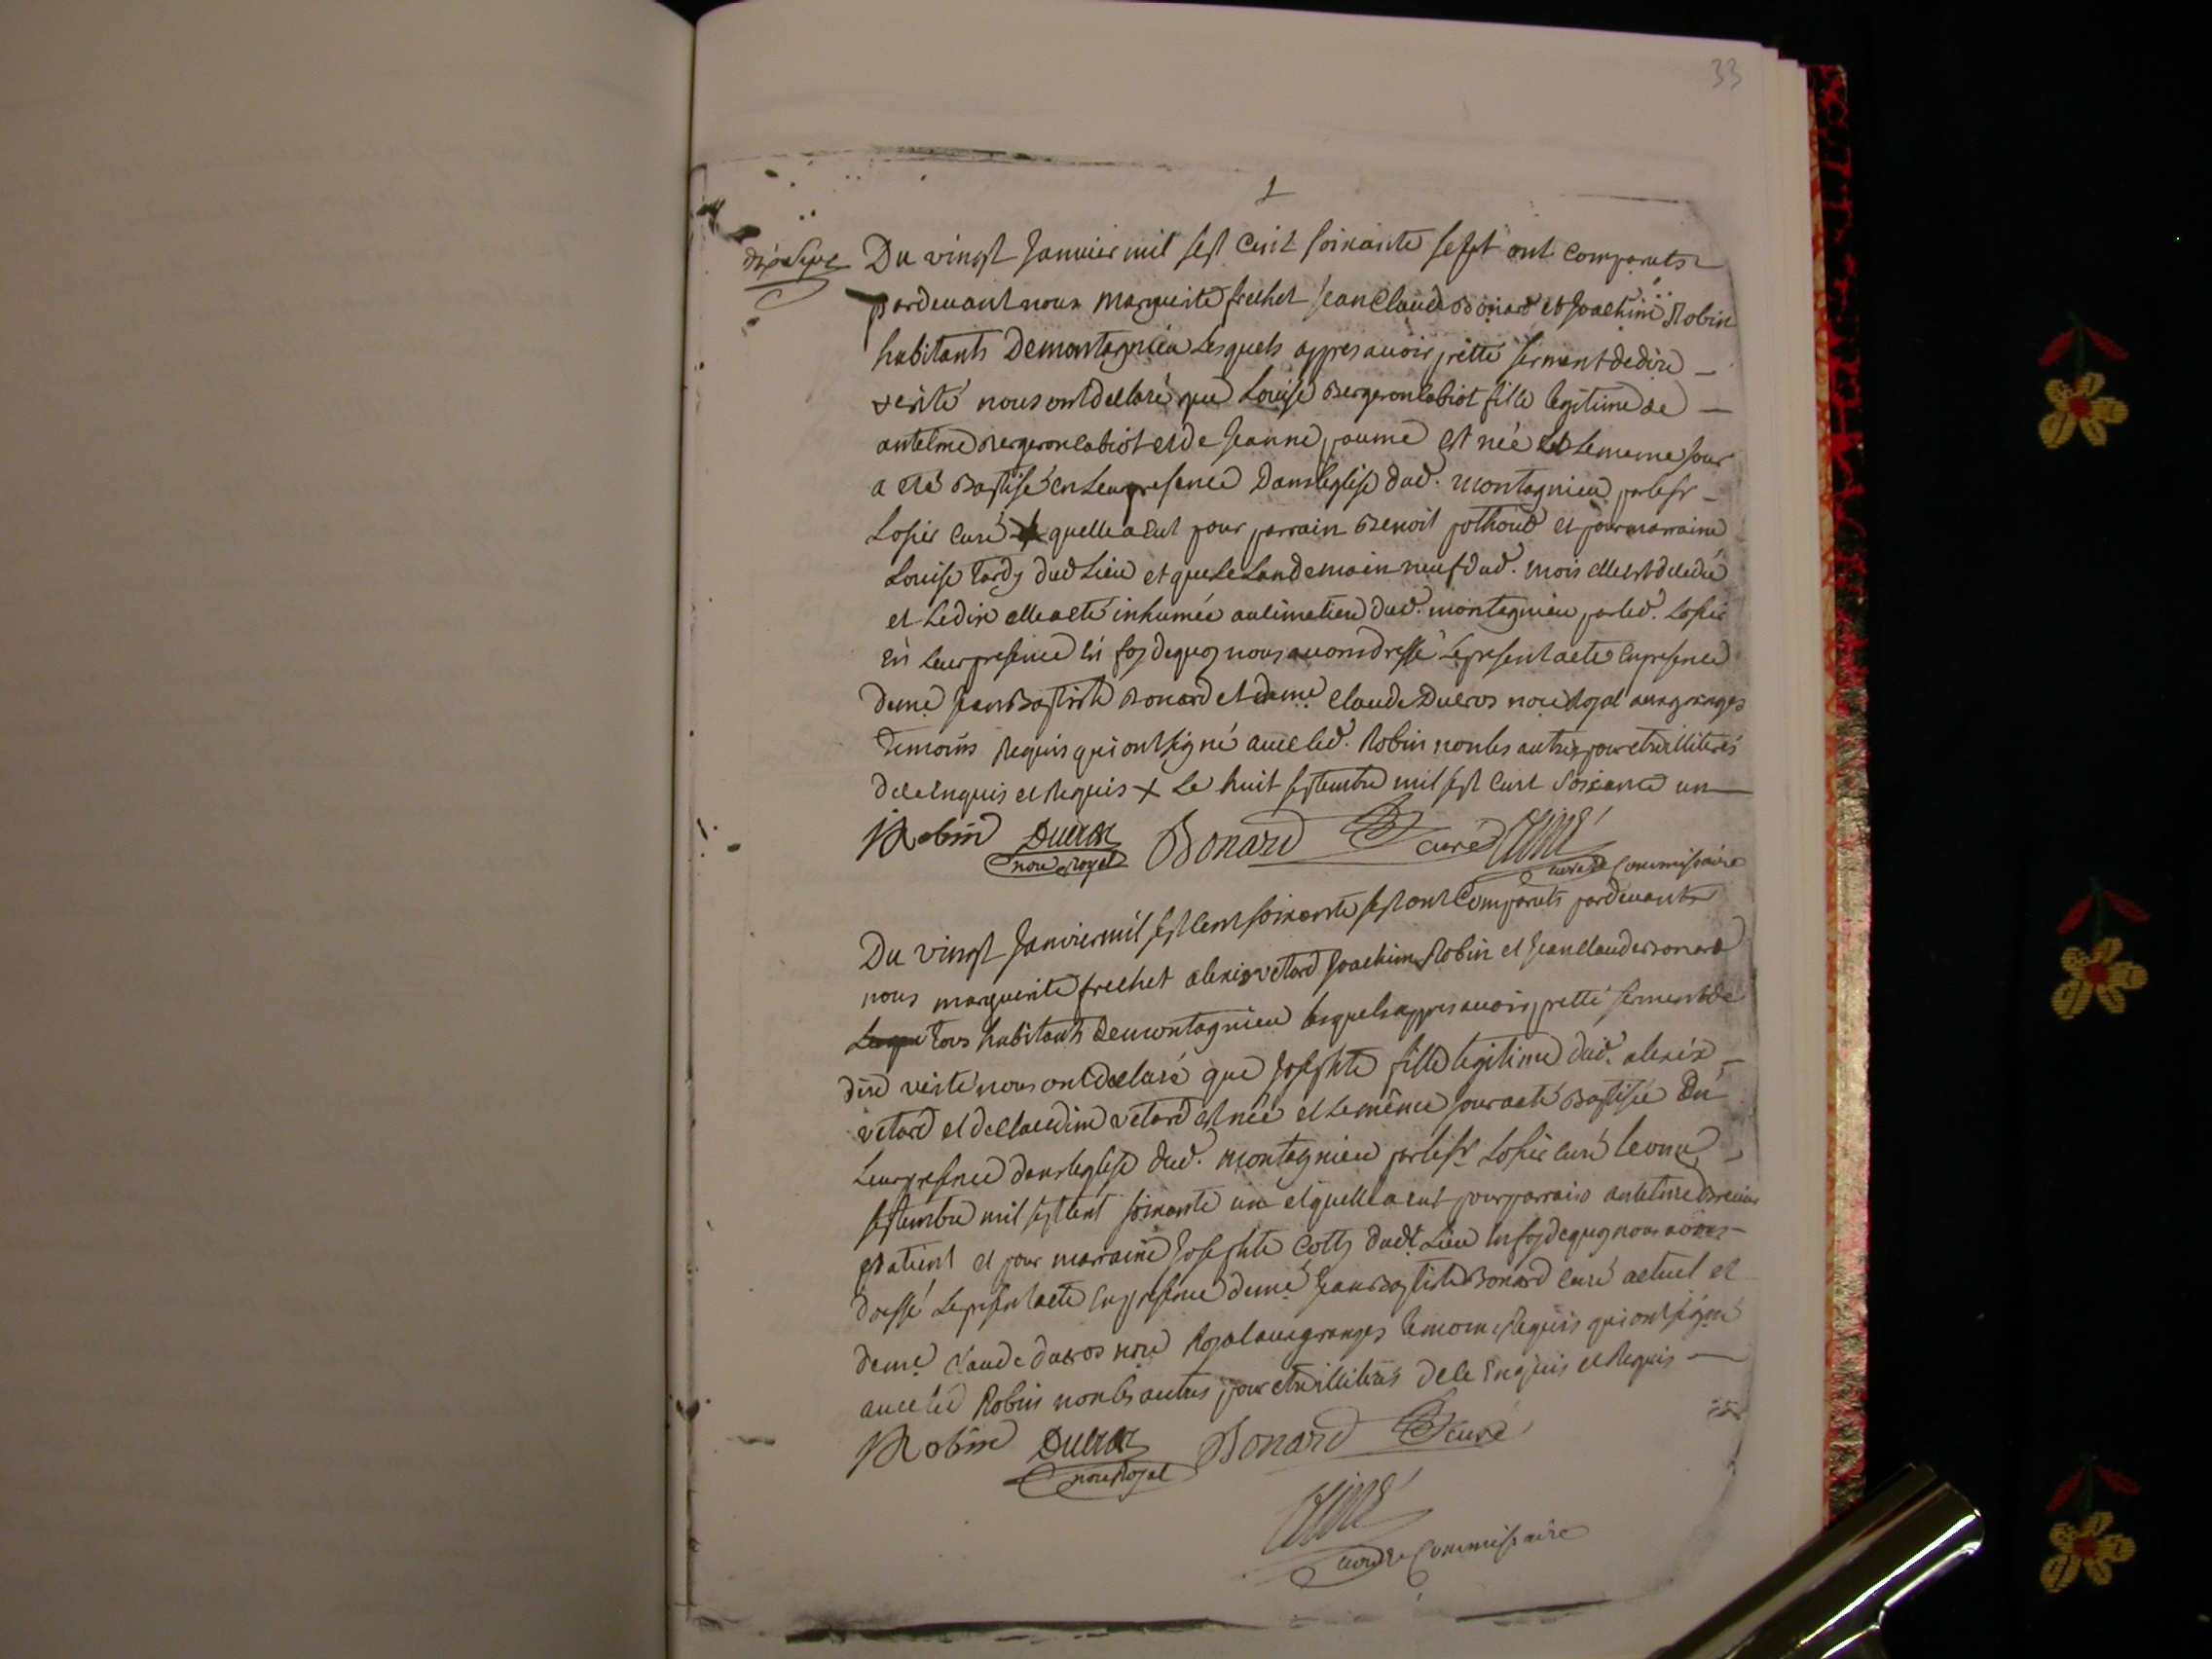 33
1
Du vingt Janvier mil sept Cent soixante sept ont comparuts
pardevant nous marguerite frechet Jean Claude Bonard et Joachim Robin
habitants De montagnieu Lesquels appres avoir pretté serment de dire
verité nous ont declaré que Louise Bergeron labiot fille legitime de
antelme Bergeron labiot et de Jeanne jaume est née et Le meme Jour
a eté Baptisé en Leur presence Dans leglise dud. montagnieu par le sr
Losier curé quelle a Eut pour parrain Benoit pothoud et pour marraine
Louise Tardy dud Lieu et que Le Landemain neuf dud. mois elle est decedé
et Le dix elle a eté inhumée au cimetiere dud. montagnieu par led. Losier
En Leur presence En foy de quoy nous avons dressé Le present acte En presence
de me Jean Baptiste Bonard et de me Claude Ducros nore Royal aux granges
temoins Requis qui ont signé avec led. Robin non les autres pour etre illiterés
de ce Enquis et Requis + Le huit septembre mil sept Cent soixante un
J Robin Ducros Bonard curé
nore Royal curé Commissaire
Du vingt Janvier mil sept Cent soixante sept ont Comparuts pardevant
nous marguerite frechet alexis vetard Joachim Robin et Jean Claude Bonard
Tous habitants de montagnieu lesquels appres avoir pretté serment de
dire verité nous ont declaré que Josephte fille legitime dud. alexis
vetard et de Claudine vetard est née et Le même Jour a eté Baptisée En
Leur presence dans leglise dud. montagnieu par le sr Losier curé le onze
septembre mil sept Cent soixante un et quelle a eut pour parrain antelme
patient et pour marraine Josephte Cotty dudt Lieu En foy de quoy nous avons
dressé Le present acte En presence de me Jean Baptiste Bonard curé actuel et
de me Claude ducros nore Royal aux granges temoins Requis qui ont signé
avec led Robin non les autres pour etre illiterés de ce Enquis et Requis
J Robin Ducros Bonard curé
nore Royal
Commissaire